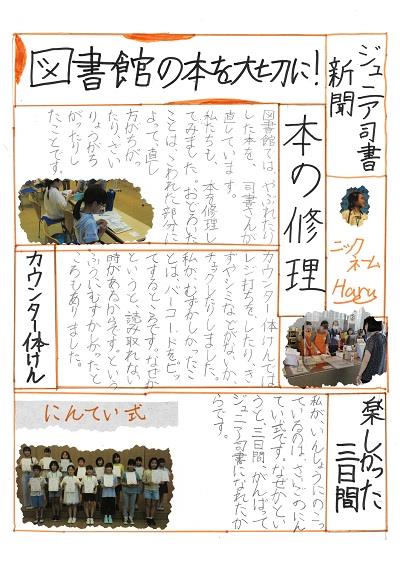 ジュニア司書
新聞
図書館の本を大切に!
ニック
ネーム
Haru
本の修理
図書館では、やぶれたり
した本を、司書さんが
直しています。
私たちも、本を修理し
てみました。おどろいた
ことは、こわれた部分に
よって、直し
方がちが
ったり、ざい
りょうがち
がったりし
たことです。
カウンター体けん
カウンター体けんでは、
レジ打ちをしたり、き
ずやシミなどがないか
チェックしたりしました。
私が、むずかしかったこ
とは、バーコードをピッ
てするところです。なぜか
というと、読み取れない
時があるからです。という
ふうにむずかしかったと
ころもありました。
楽しかった
三日間
私が、いんしょうにのこっ
ているのは、さいごのにん
てい式です。なぜかとい
うと、三日間、がんばって
ジュニア司書になれたか
らです。
にんてい式